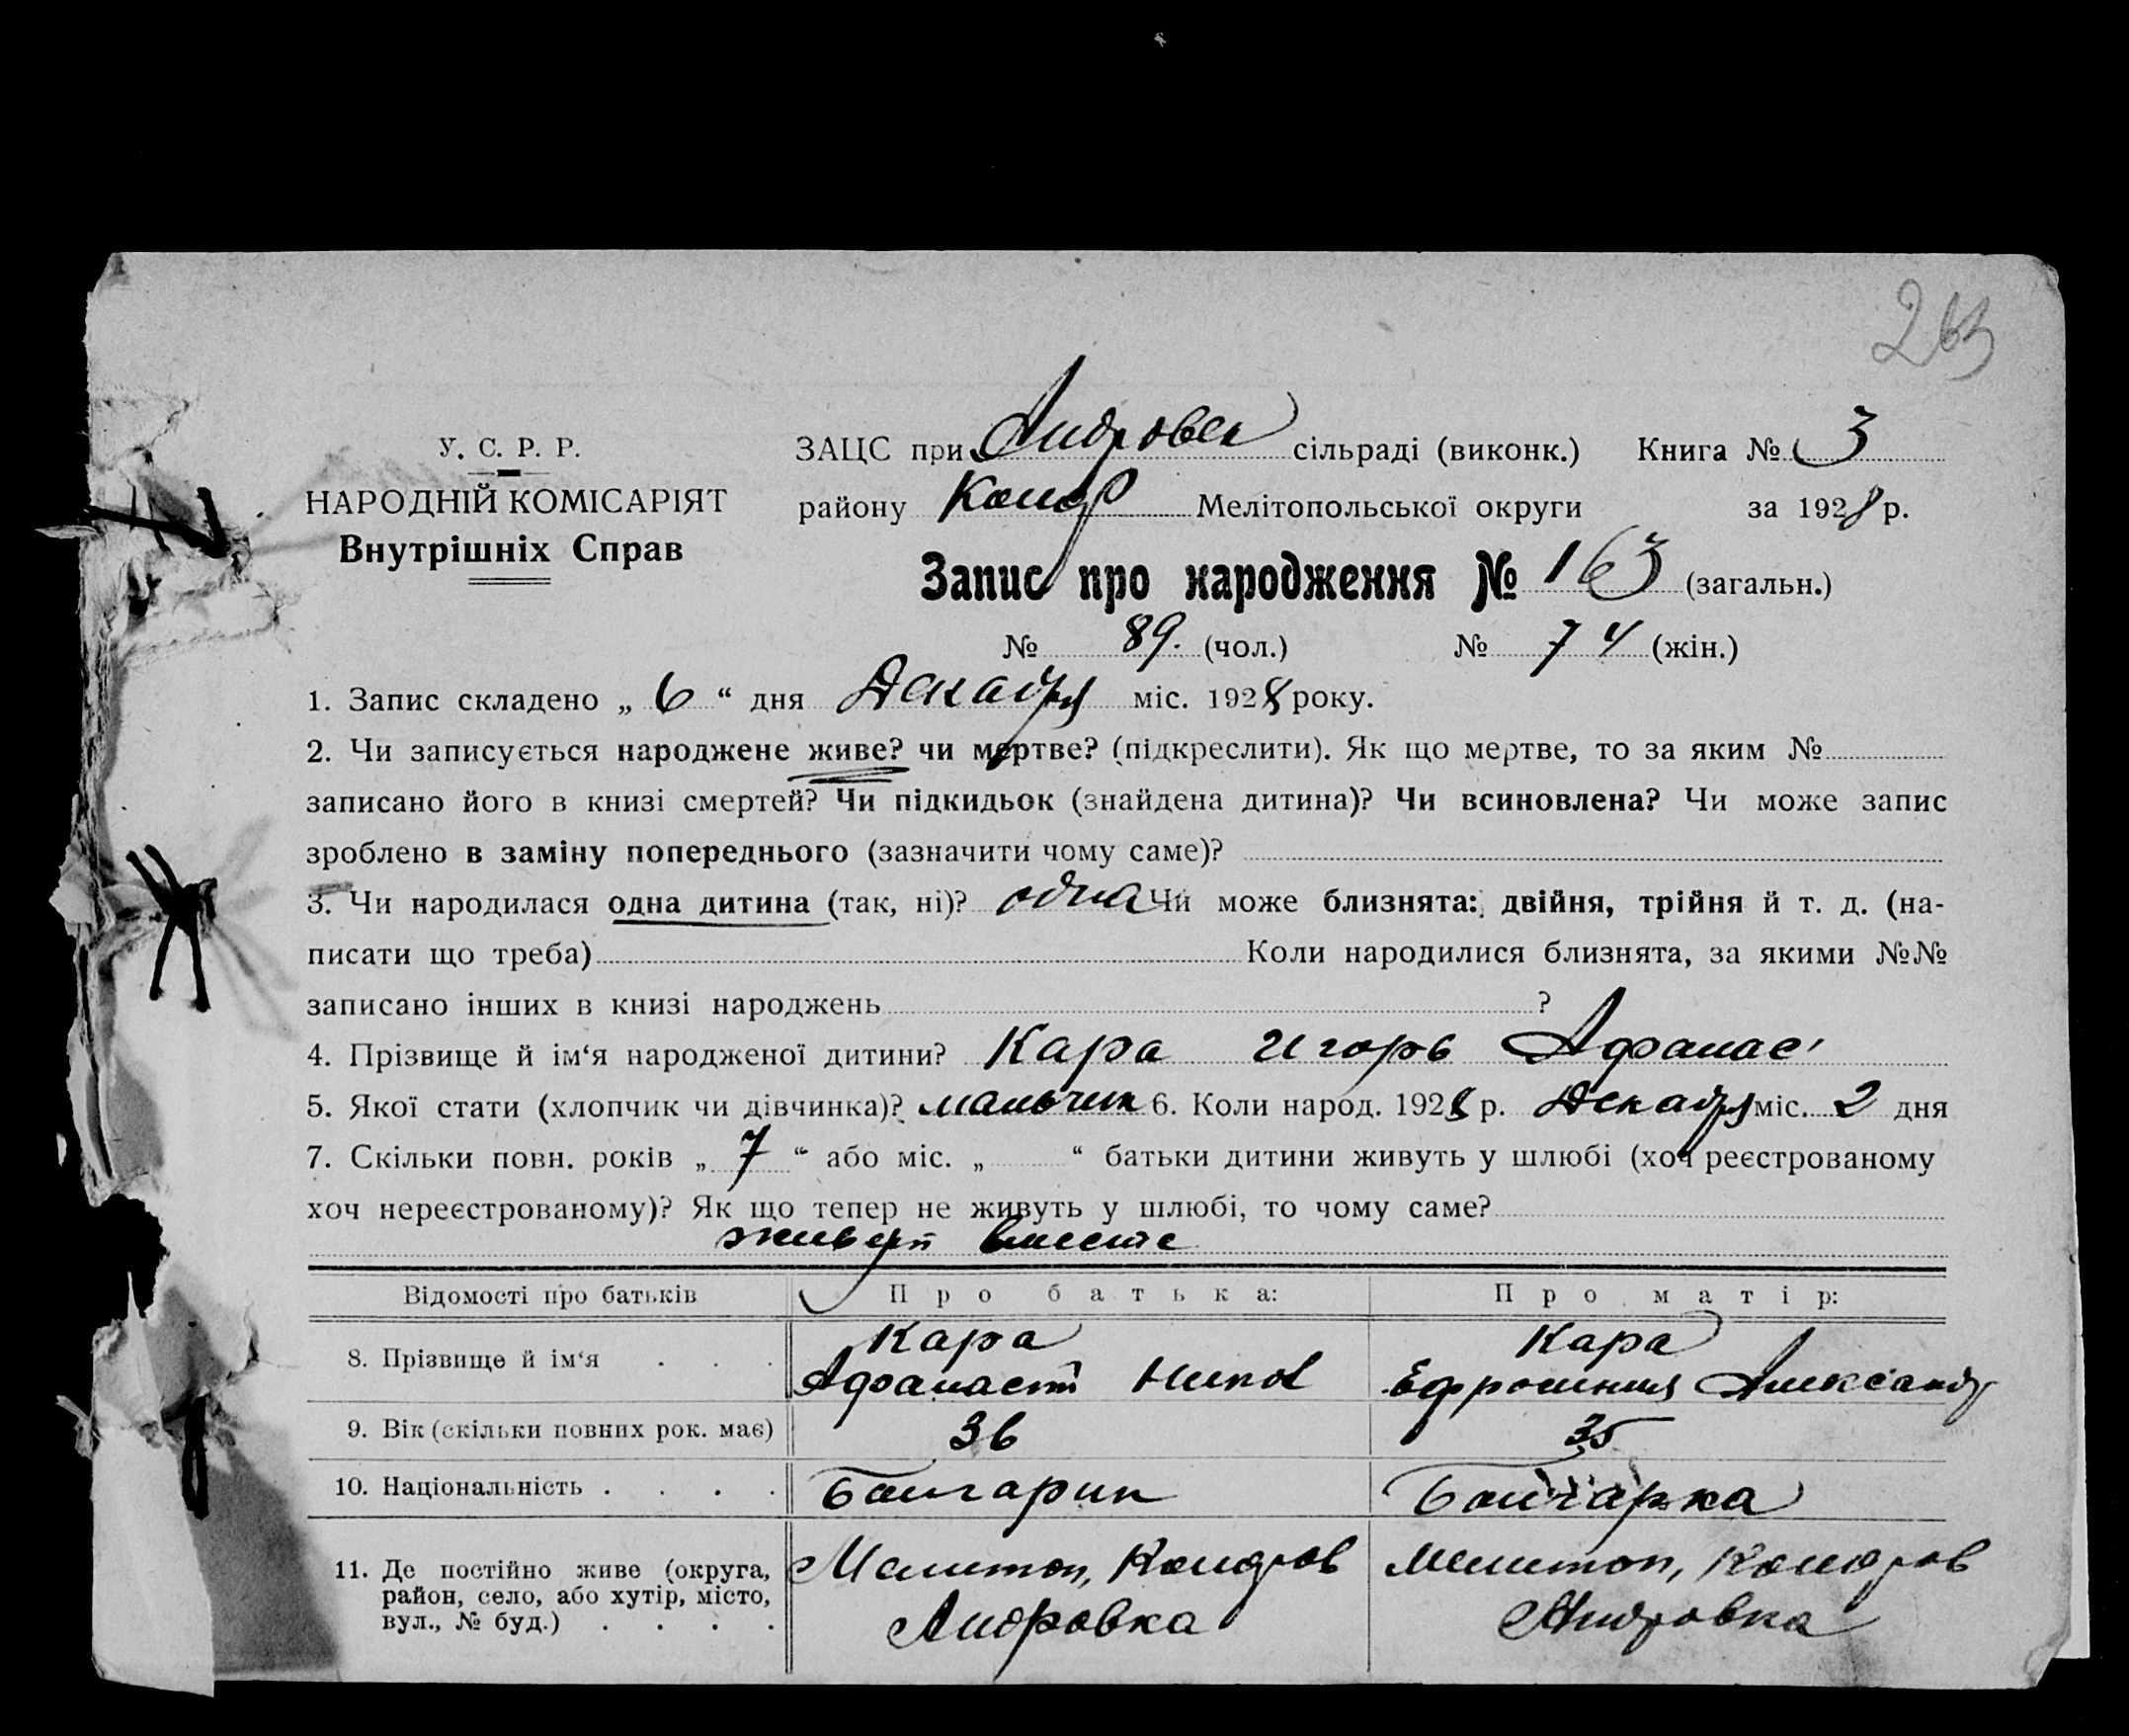 263
У. С. Р. Р.
НАРОДНІЙ КОМІСАРІЯТ
Внутрішніх Справ
ЗАЦС при Андровск сільраді (виконк.) Книга № 3
району Мелітопольської округи за 1928 р.
Запис про народження № 163 (загальн.)
№ 89. (чол.) № 74 (жін.)
1. Запис складено „ 6 “ дня Декабря міс. 1928 року.
2. Чи записується народжене живе? чи мертве? (підкреслити). Як що мертве, то за яким №
записано його в книзі смертей? Чи підкидьок (знайдена дитина)? Чи всиновлена? Чи може запис
зроблено в заміну попереднього (зазначити чому саме)?
3. Чи народилася одна дитина (так, ні)? одна Чи може близнята: двійня, трійня й т. д. (на-
писати що треба) Коли народилися близнята, за якими №№
записано інших в книзі народжень ?
4. Прізвище й ім‘я народженої дитини? Кара Игорь Афанас
5. Якої стати (хлопчик чи дівчинка)? мальчик 6. Коли народ. 1928 р. Декабря міс. 2 дня
7. Скільки повн. років „ 7 “ або міс. „ “ батьки дитини живуть у шлюбі (хоч реєстрованому
хоч нереєстрованому)? Як що тепер не живуть у шлюбі, то чому саме?
живут вместе
Відомості про батьків Про батька: Про матір:
8. Прізвище й ім‘я . . . Кара Кара
Афанасий Ефросиния Александр
9. Вік (скільки повних рок. має) 36 35
10. Національність . . . . Болгарин Болгарка
11. Де постійно живе (округа, район, село, або хутір, місто, вул., № буд.) . . . . Мелитоп, Коларов Мелитоп, Коларов
Андровка Андровка